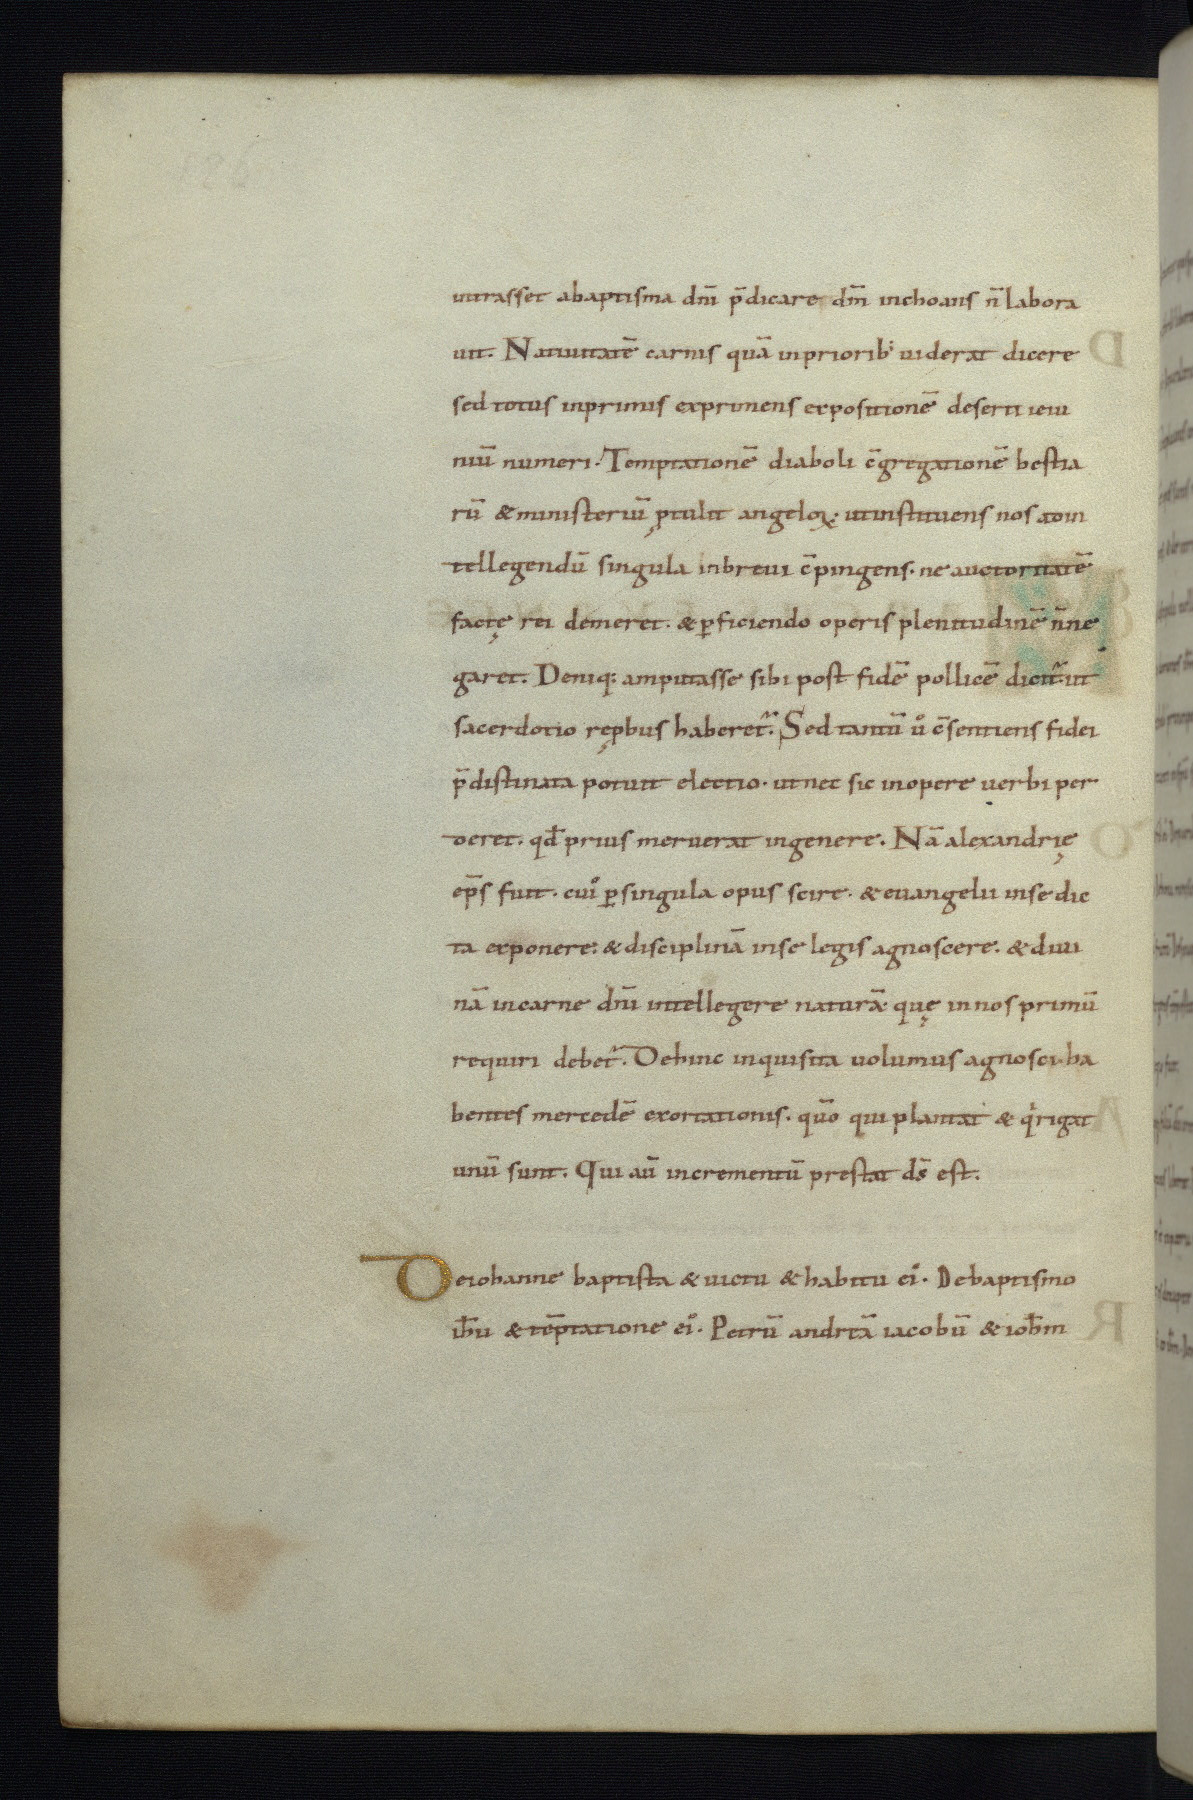 uitasset abaptisma dnı̄ p̄dicare dm̄ inchoans n̄ labora
uit. Natiuitatē carnis quā inpriorib; uiderat dicere
sed totus inprimis exprimens expositionē deserti ieiu
niū numeri. Temptationē diaboli c̄gregationē bestia
rū & ministeriū ptulit angeloꝝ. ut instituens nos atom
tellegendū singula inbreui c̄pingens. ne auctoritatē
factę rei demeret. & ꝑficiendo operis plenitudinē n̄ ne
garet. Deniq; amputasse sibi post fidē pollicē dicit᷑. ut
sacerdotio rep̱bus haberet᷑. Sed tantū ů c̄sentiens fidei
p̄distinata potuit electio. ut nec sic inopere uerbi per
deret. qd̄ prius meruerat ingenere. Nā alexandrię
ep̄s fuit. cui᷒ ꝑ singula opus scire. & euangelii inse dic
ta exponere. & disciplinā inse legis agnoscere. & diui
nā incarne dnı̄ intellegere naturā. quę in nos primū
requiri debet᷑. Dehinc inquisita uolumus agnosci. ha
bentes mercedē exortationis. quō qui plantat & q̓ rigat
unū sunt. Qui aū incrementū prestat ds̄ est.
De iohanne baptista & uictu & habitu ei᷒. De baptismo
ih̄u & tēptatione ei᷒. Petrū andreā iacobū & ioh̄m